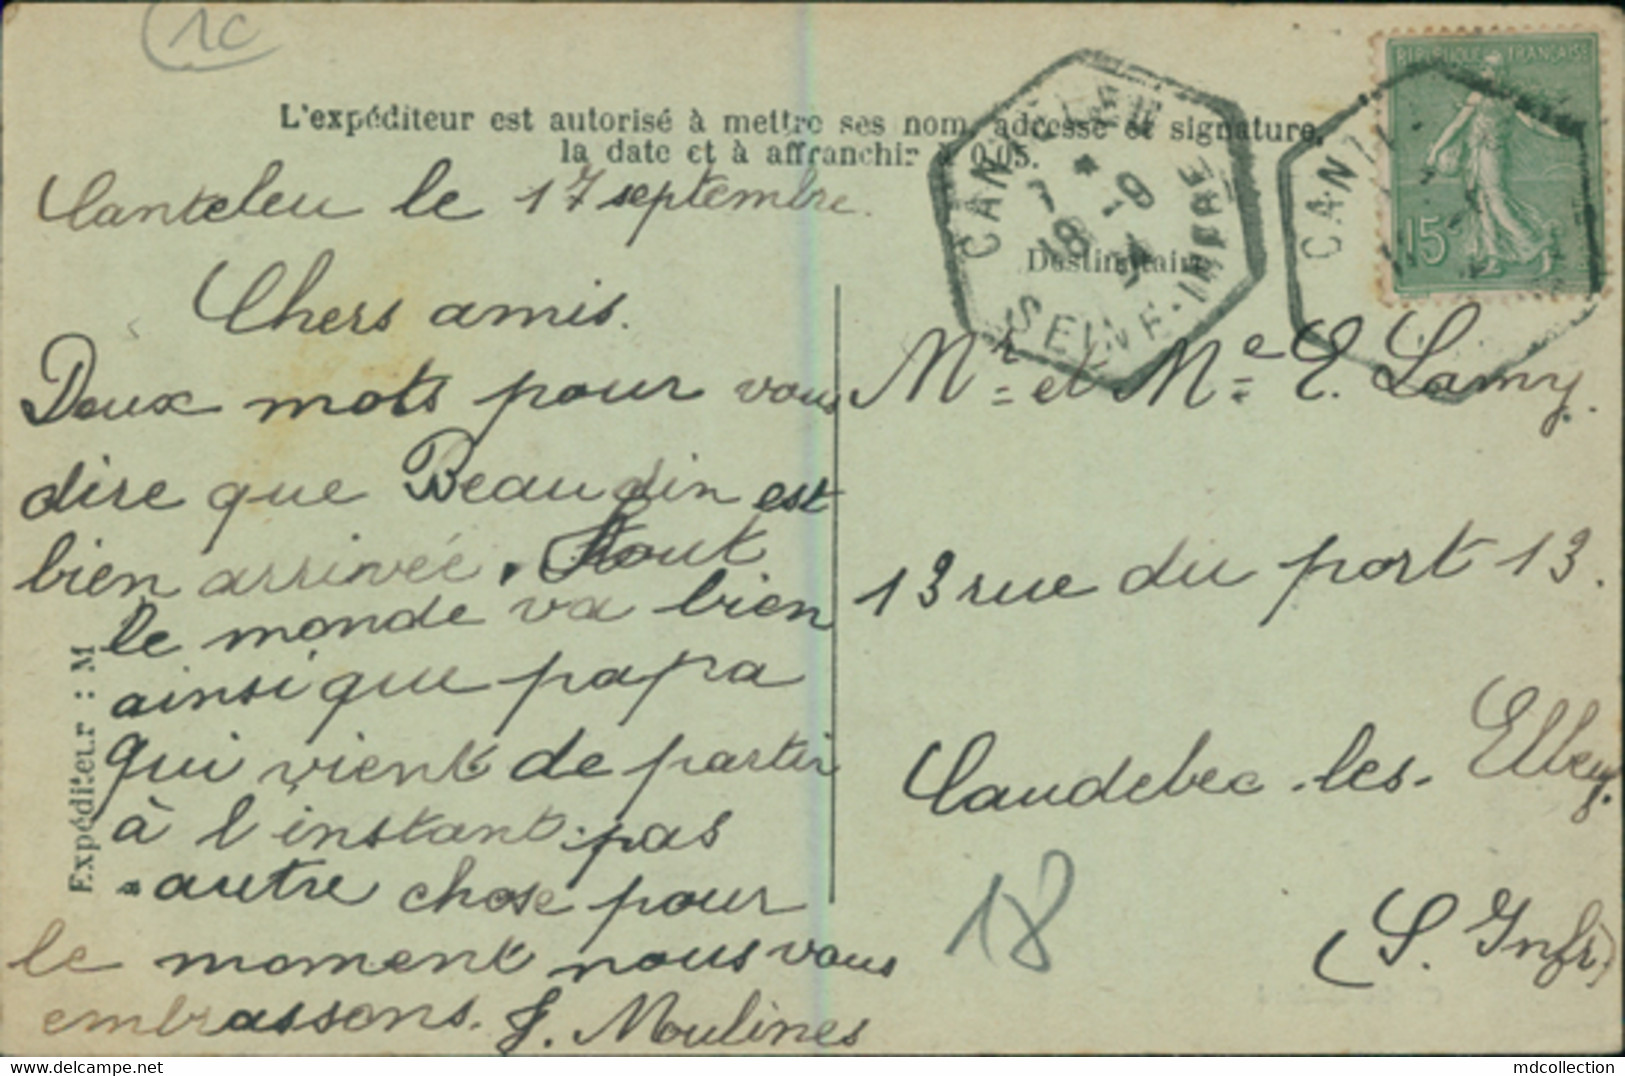 1C
L'expéditeur est autorisé à mettre ses nom, adresse et signature,
la date et à affranchir à 0,05.
Canteleu le 17 septembre.
Chers amis.
Deux mots pour vous
dire que Beaudin est
bien arrivée, tout
le monde va bien
ainsi que papa
qui vient de partir
à l'instant. pas
autre chose pour
le moment nous vous
embrassons. J. Moulines
Expéditeur : M
Destinataire
Mr et Me E. Lamy.
13 rue du port 13.
Caudebec-les-Elbeuf
(S. Infr)
18
CANTELEU
18 -9
SEINE-INFRE
REPUBLIQUE FRANÇAISE
15c
CANT
mdcollection